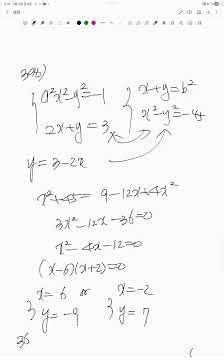 a²x²-y²=-1
x+y=b²
2x+y=3
x²-y²=-4
y=3-2x
9-12x+4x²
3x²-12x-36=0
x²-4x-12=0
(x-6)(x+2)=0
x=6 or x=-2
y=-9 y=7